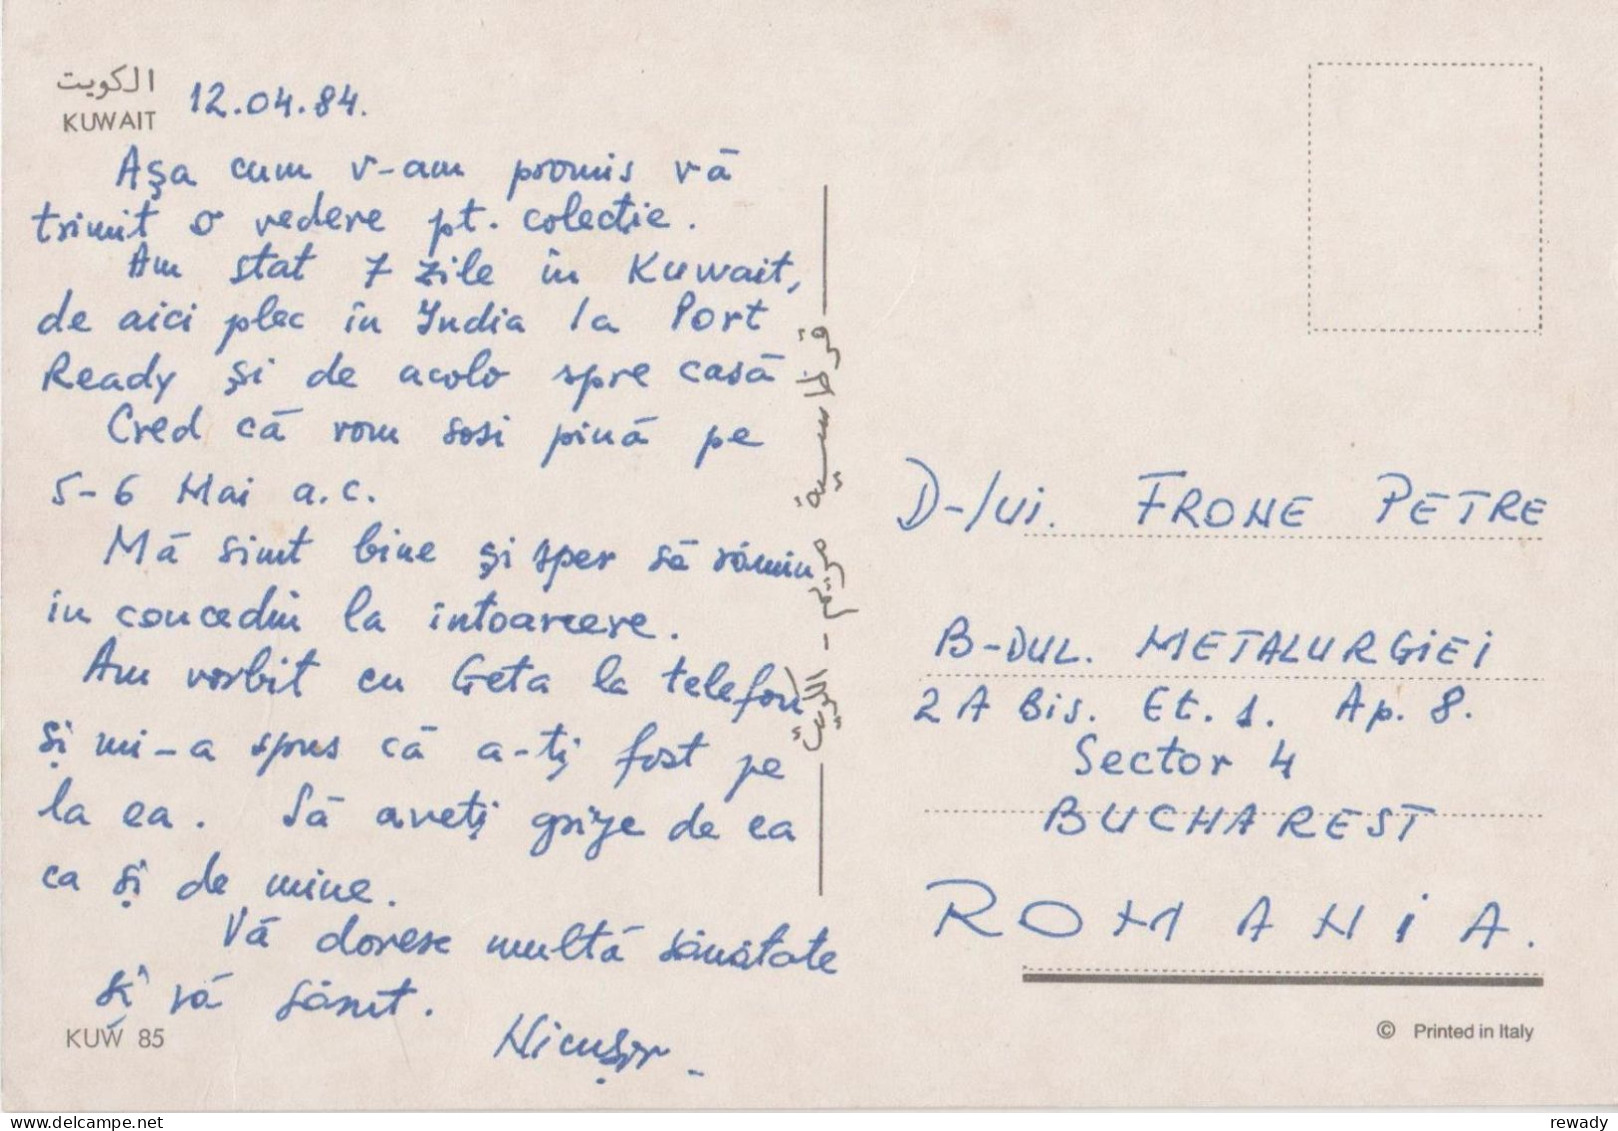 الكويت
KUWAIT
12.04.84.
Aşa cum v-am promis vă
trimit o vedere pt. colecție.
Am stat 7 zile în Kuwait,
de aici plec în India la Port
Ready şi de acolo spre casă
Cred că vom sosi pină pe
5-6 Mai a.c.
Mă simt bine şi sper să rămin
in concediu la intoarcere.
Am vorbit cu Geta la telefon
şi mi-a spus că a-ţi fost pe
la ea. Să aveţi grije de ea
ca şi de mine.
Vă doresc multă sănătate
şi vă sărut.
Nicuşor
KUW 85
D-lui. FRONE PETRE
B-DUL. METALURGiEi
2A Bis. Et. 1. Ap. 8.
Sector 4
BUCHAREST
ROMANiA.
© Printed in Italy
delcampe.net
rewady